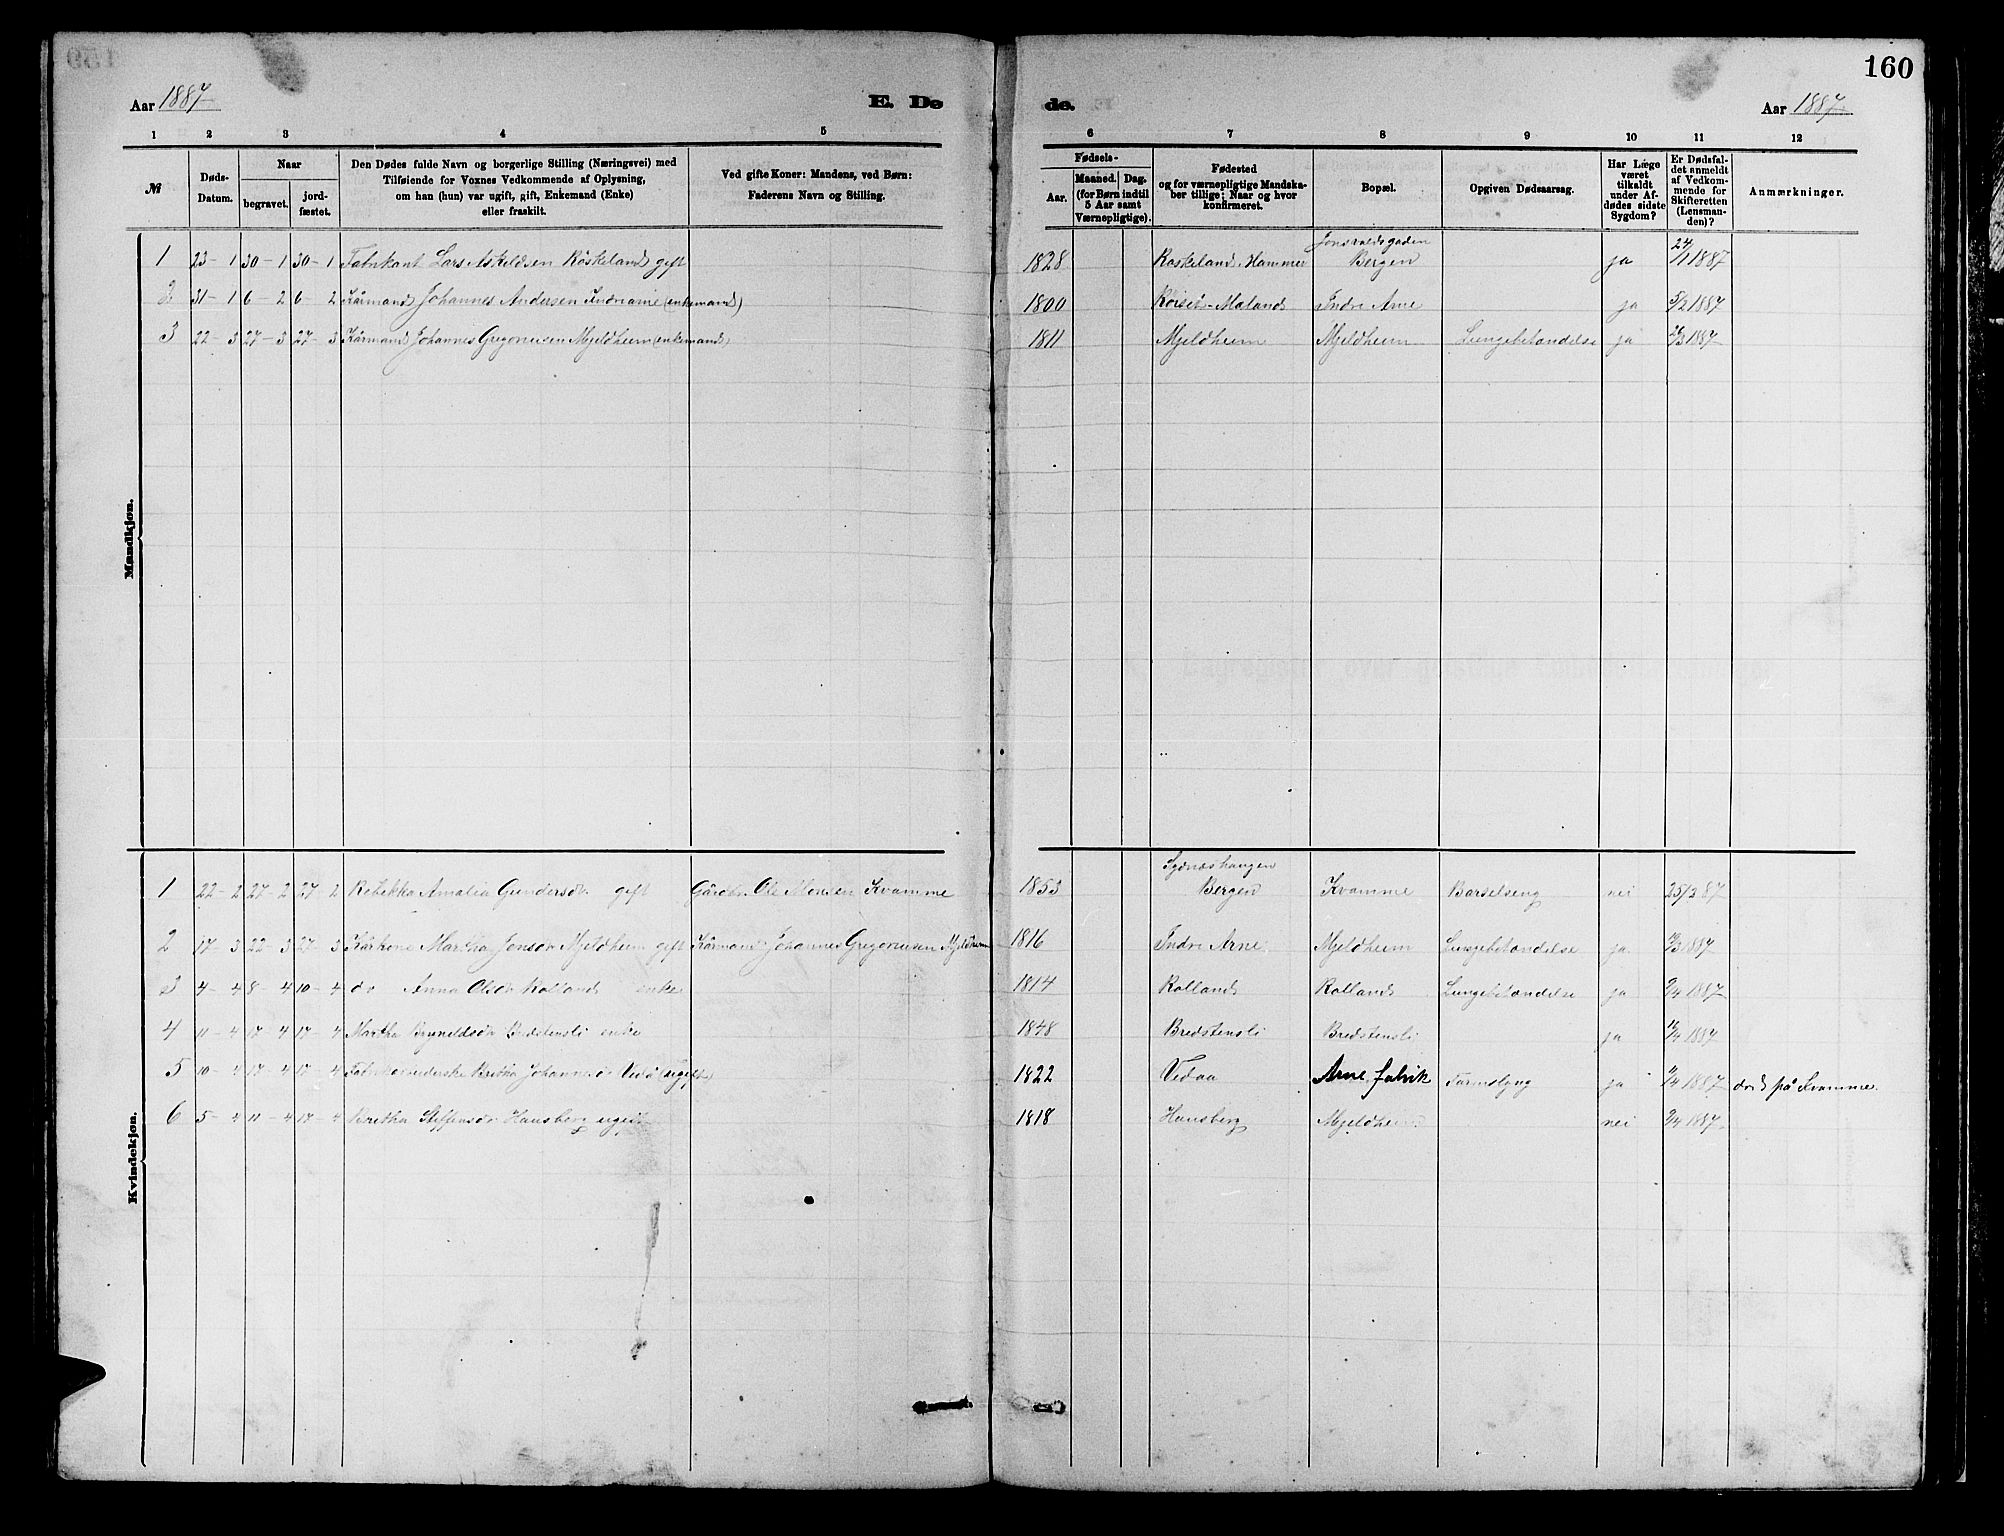 160
Aar 1887
E. Dø
de.
Aar 1887
1 2 3 4 5 6 7 8 9 10 11 12
№
Døds-
Datum.
Naar
begravet.
jord-
fæstet.
Den Dødes fulde Navn og borgerlige Stilling (Næringsvei) med
Tilføiende for Voxnes Vedkommende af Oplysning,
om han (hun) var ugift, gift, Enkemand (Enke)
eller fraskilt.
Ved gifte Koner: Mandens, ved Børn:
Faderens Navn og Stilling.
Fødsels-
Aar.
Maaned. Dag.
(for Børn indtil
5 Aar samt
Værnepligtige).
Fødested
og for værnepligtige Mandska-
ber tillige: Naar og hvor
konfirmeret.
Bopæl.
Opgiven Dødsaarsag.
Har Læge
været
tilkaldt
under Af-
dødes sidste
Sygdom?
Er Dødsfal-
det anmeldt
af Vedkom-
mende for
Skifteretten
(Lensman-
den)?
Anmærkninger.
Mandkjøn.
1 23-1 30-1 30-1 Fabrikant Lars Askeldsen Röskeland gift 1828 Röskeland Hammer Bergen ja 24/1 1887
2 31-1 6-2 6-2 Kårmand Johannes Andersen Indrearne (enkemand) 1800 Maland Indre Arne ja 5/2 1887
3 22-3 27-3 27-3 Kårmand Johannes Gregoriusen Mjeldheim (enkemand) 1811 Mjeldheim Mjeldheim Lungebetændelse ja 26/3 1887
Kvindekjøn.
1 22-2 27-2 27-2 Rebekka Amalia Gundersdr gift Gårdbr. Ole Monsen Kvamme 1853 Sydneshaugen Bergen Kvamme Barselseng nei 25/2 87
2 17-3 22-3 27-3 Kårkone Martha Jonsdr Mjeldheim gift Kårmand Johannes Gregoriusen Mjeldheim 1816 Indre Arne Mjeldheim Lungebetændelse ja 1887
3 4-4 8-4 10-4 do Anna Olsdr Rolland enke 1814 Rolland Rolland Lungebetændelse ja 1887
4 11-4 17-4 17-4 Martha Brynildsdr Bredstensli enke 1848 Bredstensli Bredstensli ja 1887
5 10-4 17-4 17-4 Fabrikarbeiderske Britha Johannesdr Vedå (ugift) 1822 Vedaa Arne fabrik Tarmslyng ja 1887 død på Kvamme.
6 5-4 11-4 17-4 Britha Steffensdr Hausberg ugift 1818 Hausberg Mjeldheim nei 1887